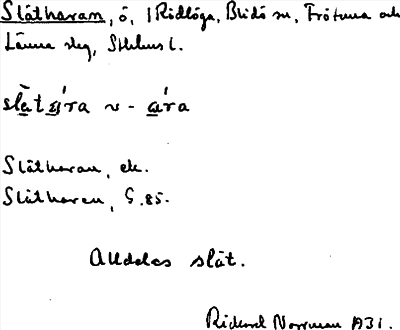 Slätharan, ö, i Rådlöga, Blidö sn, Frötuna och
Länna slg, Sthlms l.
slätara ~ - ara
Slätharan, ek.
Slätharen, G.85.
Alldeles slät.
Rickard Norrman 1931.